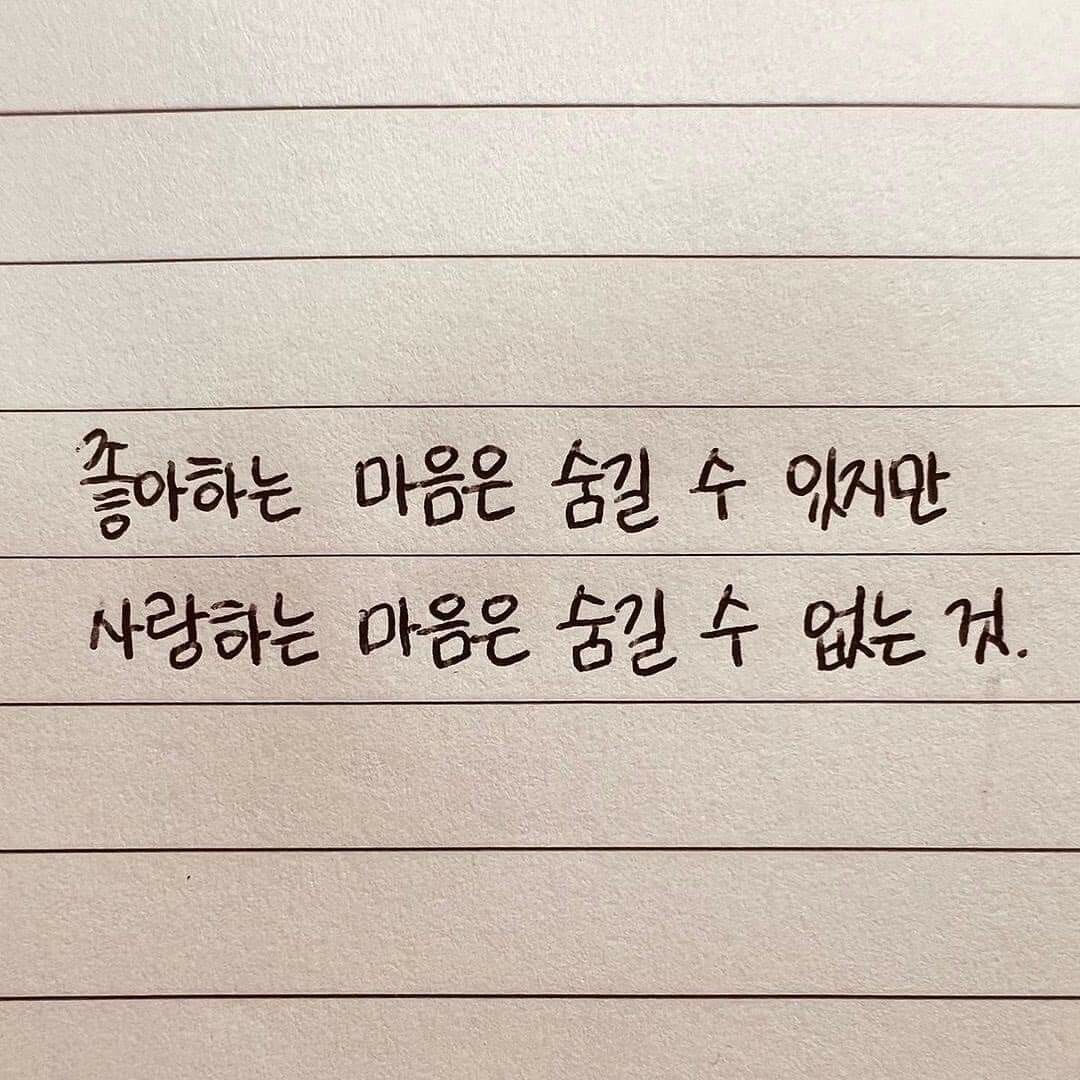 좋아하는 마음은 숨길 수 있지만
사랑하는 마음은 숨길 수 없는 것.